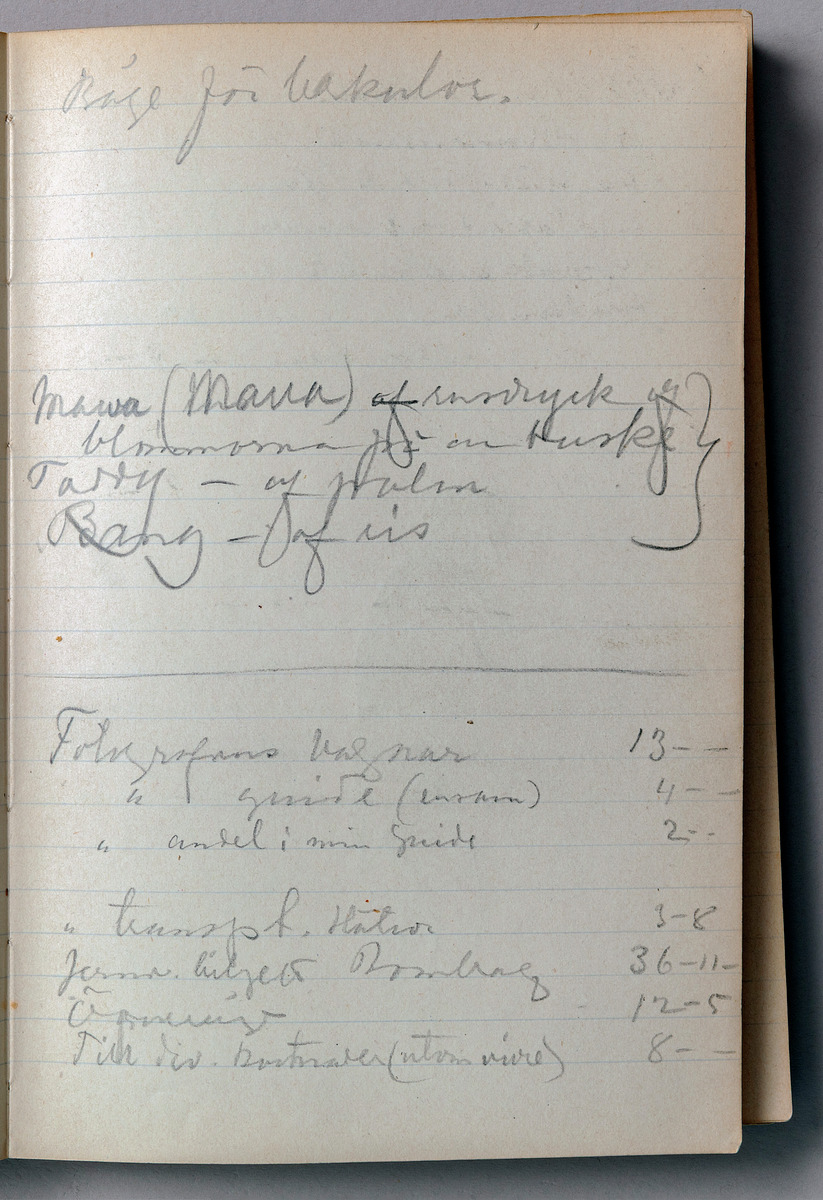 Båge för lerkulor.
Mawa (Maua) af rusdryck af
blommorna på en buske
Toddy – af palm
Bang – af ris
Fotografens vagnar 13 – –
" guide (ensam) 4 – –
" andel i min Guide 2 – –
" transpt. 3–8
Jernv. biljett Bombay 36–11–
12–5
Till div. kostnader (utom vivre) 8 – –